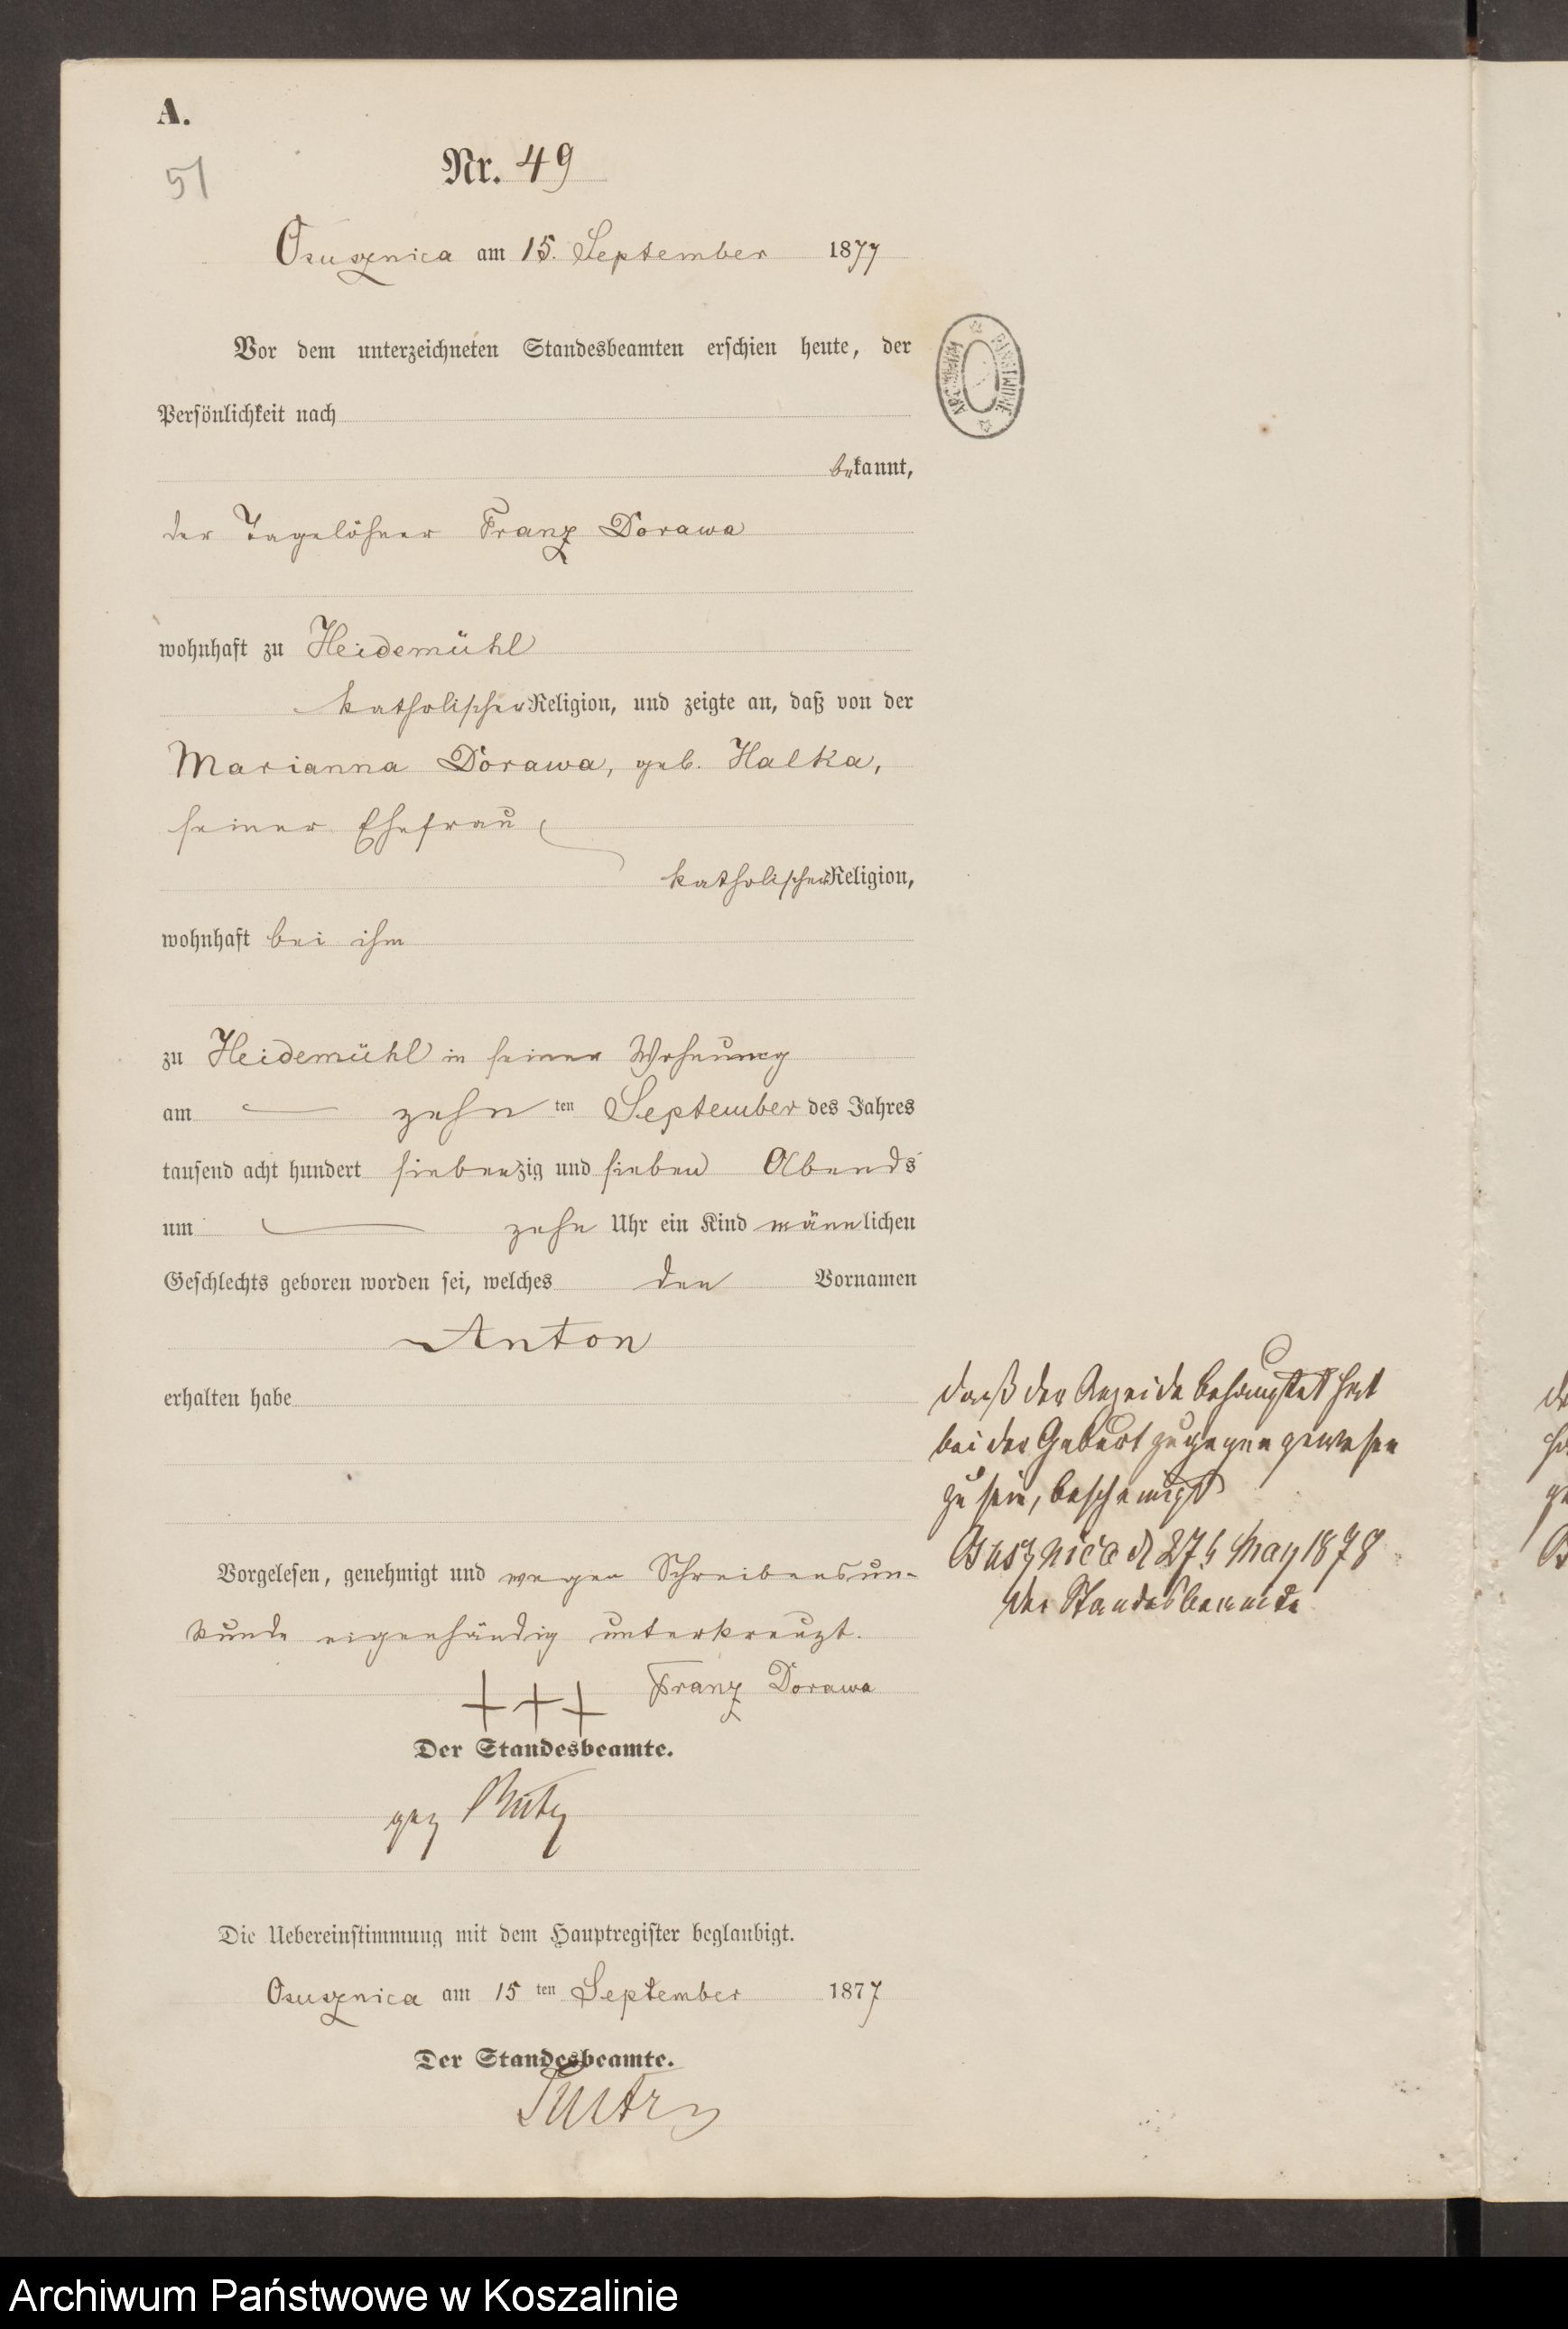 A.
51
Nr. 49
Osusznica am 15. September 1877
Vor dem unterzeichneten Standesbeamten erschien heute, der
Persönlichkeit nach
bekannt,
der Tagelöhner Franz Dorawa
wohnhaft zu Heidemühl
katholischer Religion, und zeigte an, daß von der
Marianna Dorawa, geb. Halka,
seiner Ehefrau
katholischer Religion,
wohnhaft bei ihm
zu Heidemühl in seiner Wohnung
am zehn ten September des Jahres
tausend acht hundert siebenzig und sieben Abends
um zehn Uhr ein Kind männlichen
Geschlechts geboren worden sei, welches den Vornamen
Anton
erhalten habe
Vorgelesen, genehmigt und wegen Schreibensun-
kunde eigenhändig unterkreuzt.
+++ Franz Dorawa
Der Standesbeamte.
gez
Die Uebereinstimmung mit dem Hauptregister beglaubigt.
Osusznica am 15 ten September 1877
Der Standesbeamte.
daß der behauptet hat
bei der Geburt zugegen gewesen
zu sein, bescheinigt
May 1878
Der Standesbeamte
Archiwum Państwowe w Koszalinie